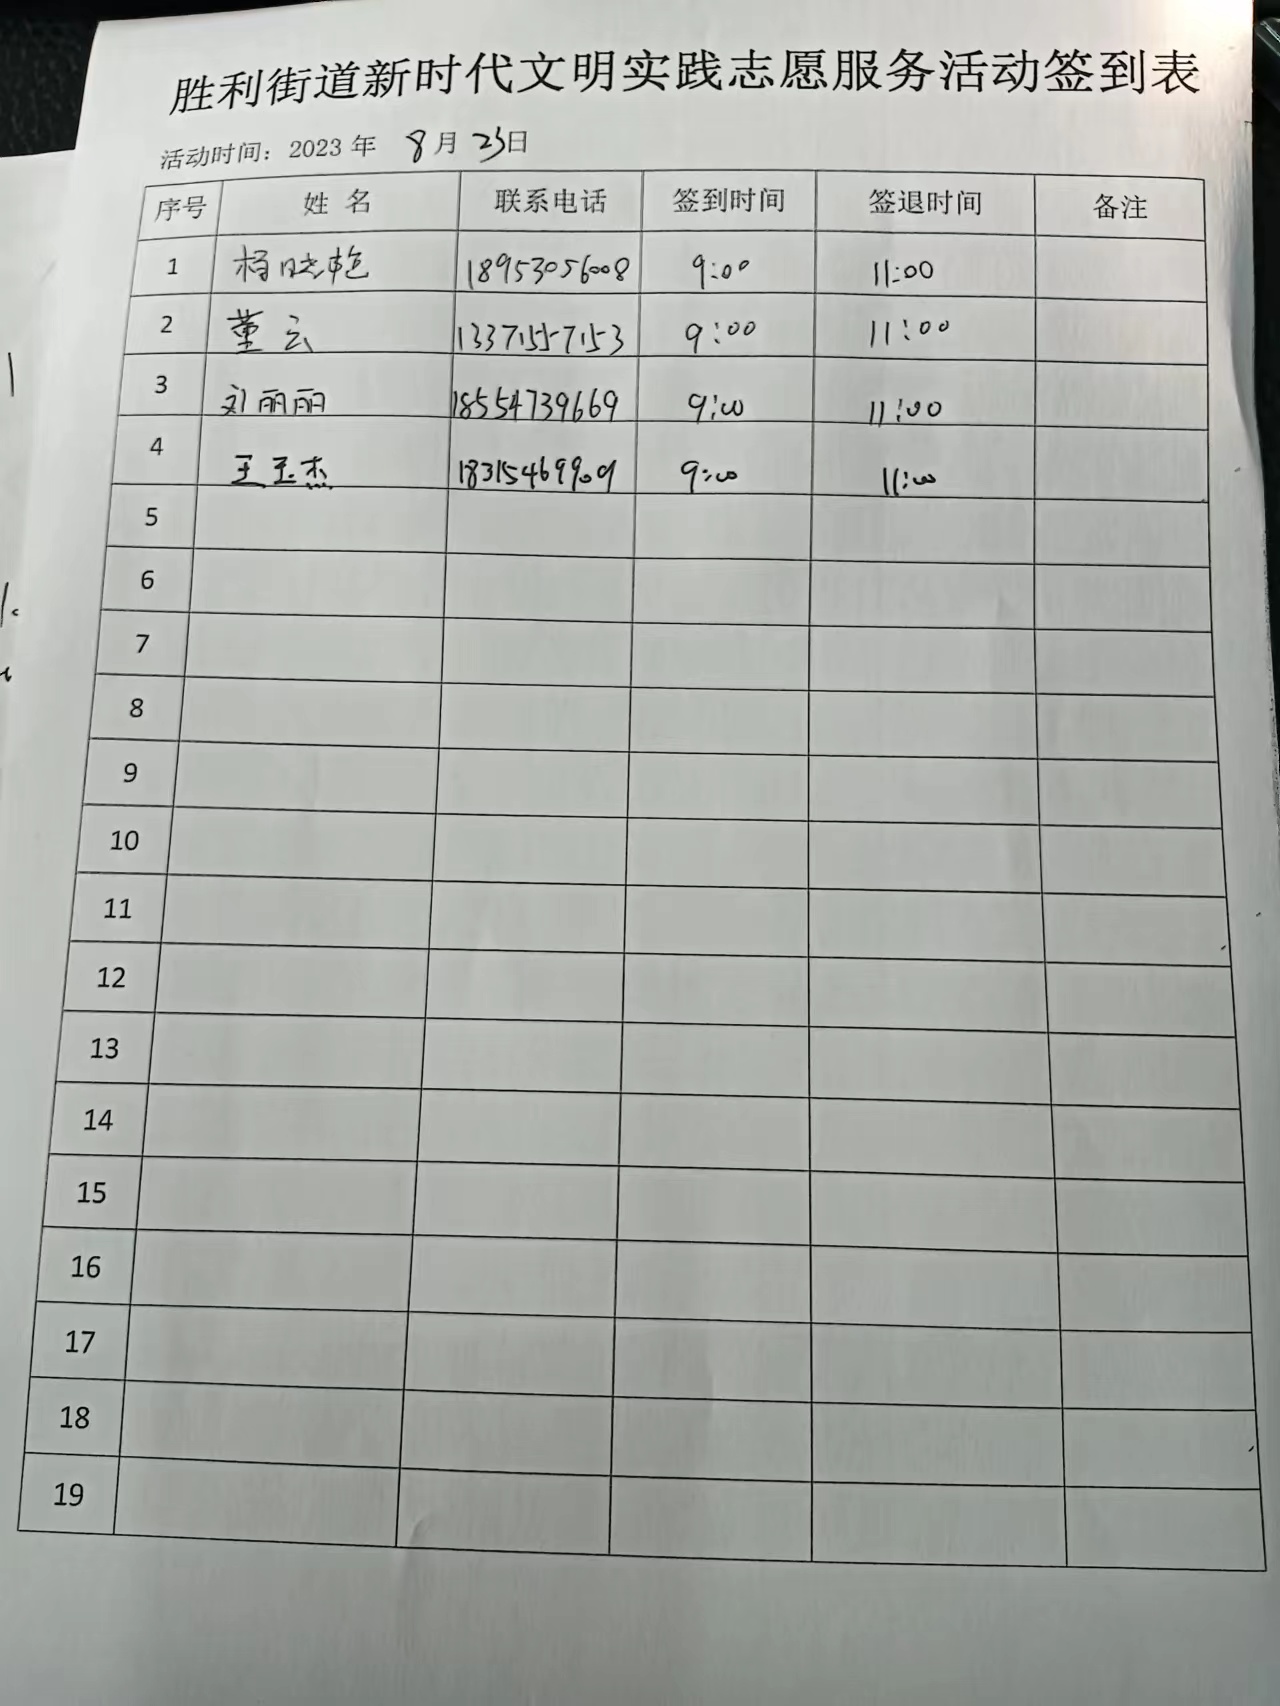 胜利街道新时代文明实践志愿服务活动签到表
活动时间：2023 年 8 月 23日
序号 姓 名 联系电话 签到时间 签退时间 备注
1 杨晓艳 18953056008 9:00 11:00
2 董云 13371557153 9:00 11:00
3 刘丽丽 18554739669 9:00 11:00
4 王玉杰 18315469909 9:00 11:00
5
6
7
8
9
10
11
12
13
14
15
16
17
18
19